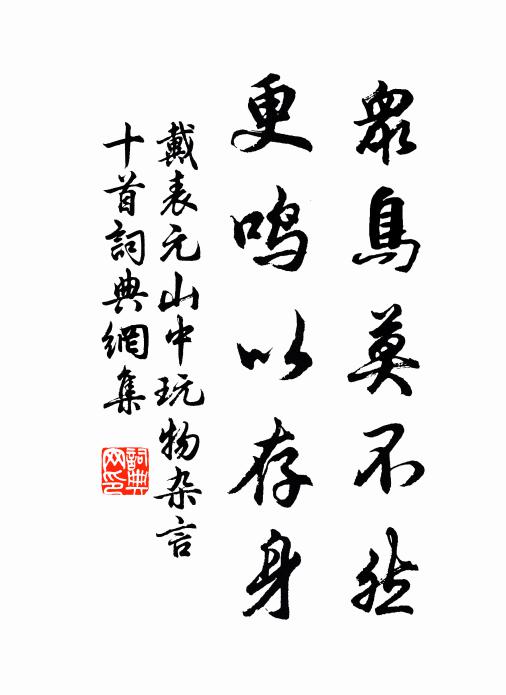 衆鳥莫不然
更鳴以存身
戴表元山中玩物杂言
十首詞典網集
詞典
网印